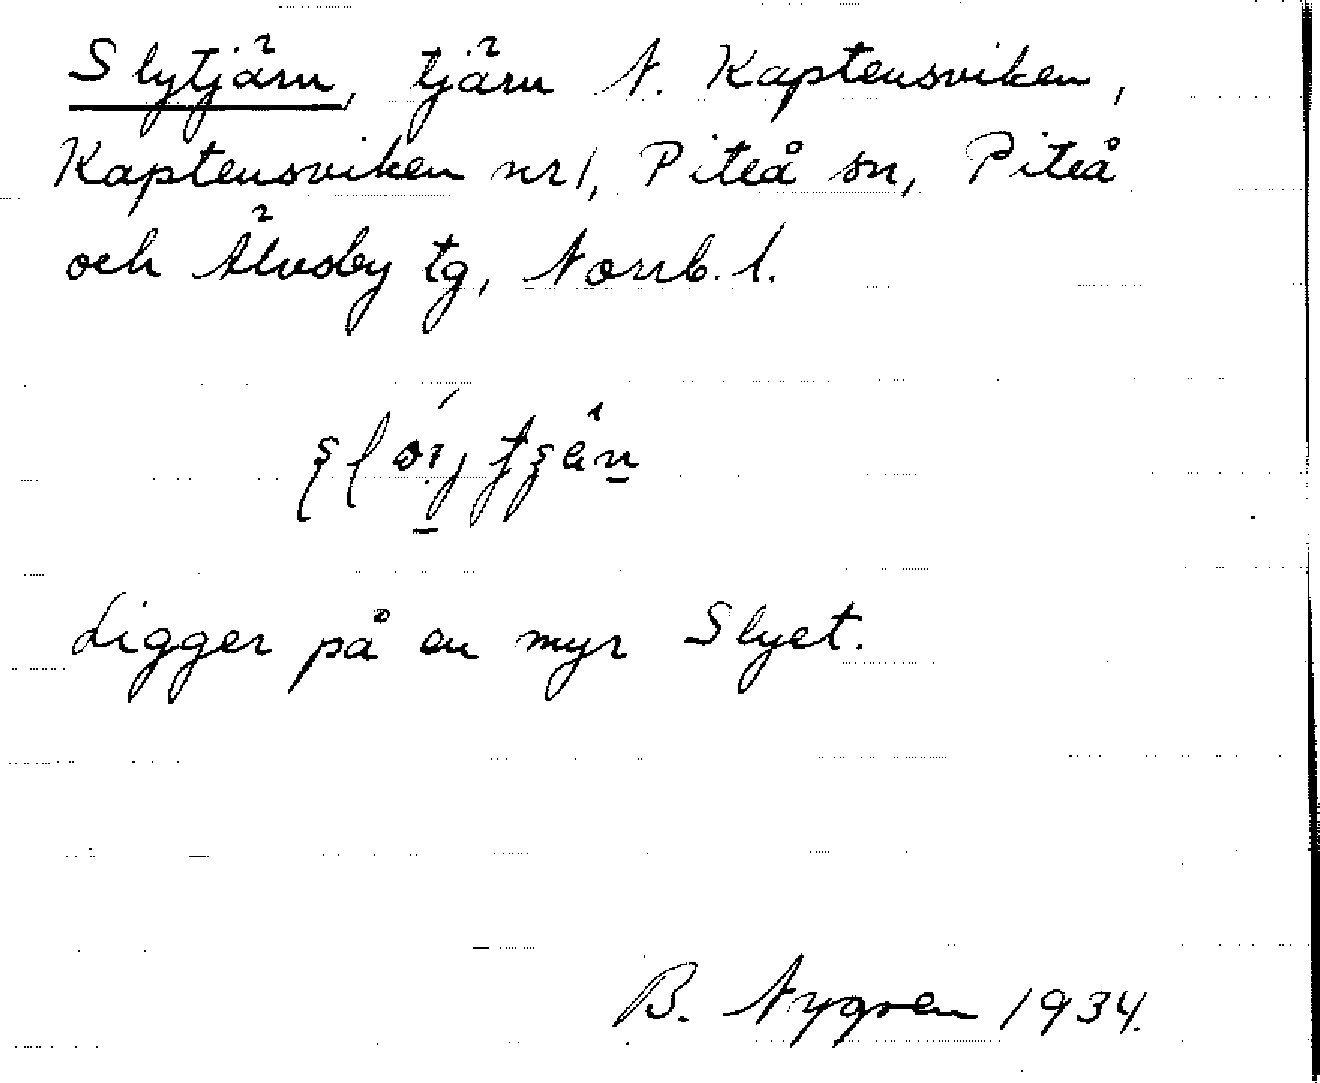 Slytjärn, tjärn N. Kaptensviken,
Kaptensviken nr 1, Piteå sn, Piteå
och Älvsby tg, Norrb. l.
Ligger på en myr Slyet.
B. Nygren 1934.